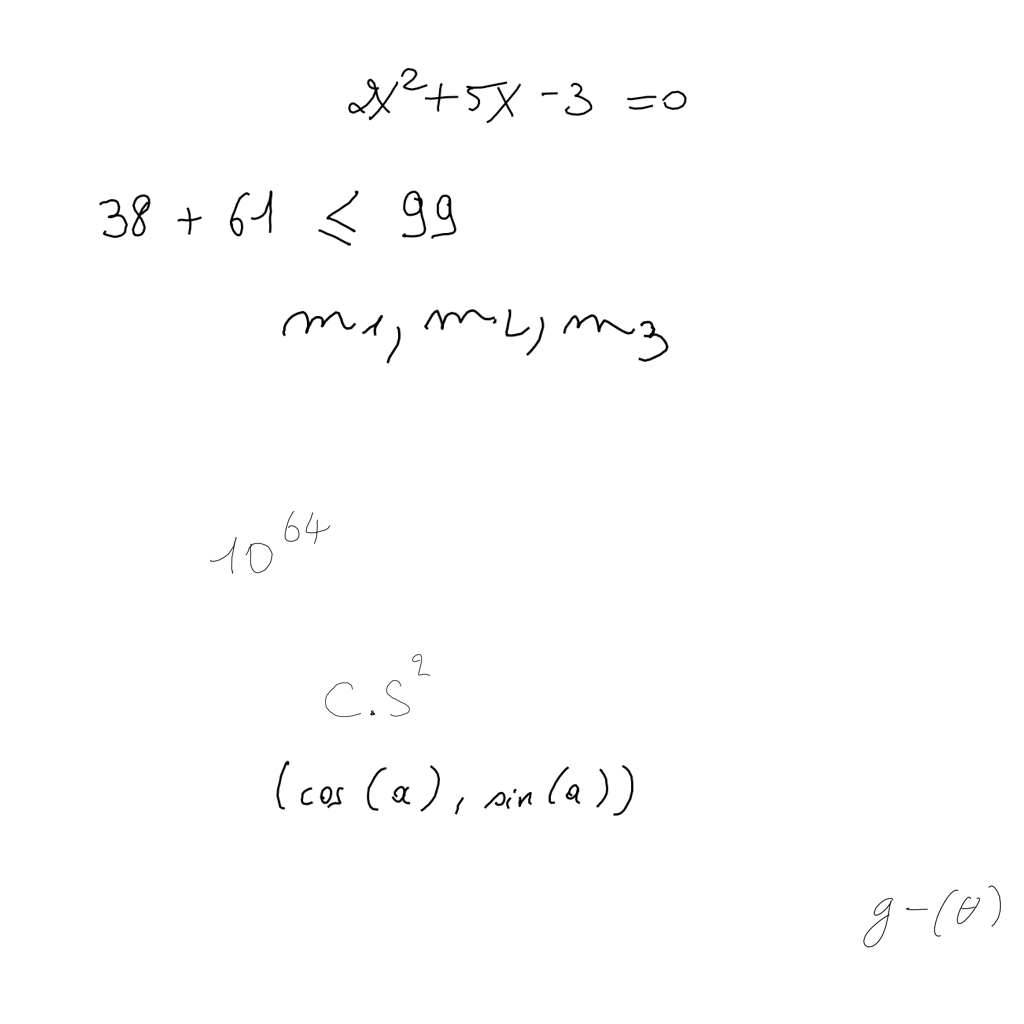 2x²+5x-3=0
38+61≤99
m₁, m₂, m₃
10⁶⁴
C.S²
(cos(a), sin(a))
g-(θ)